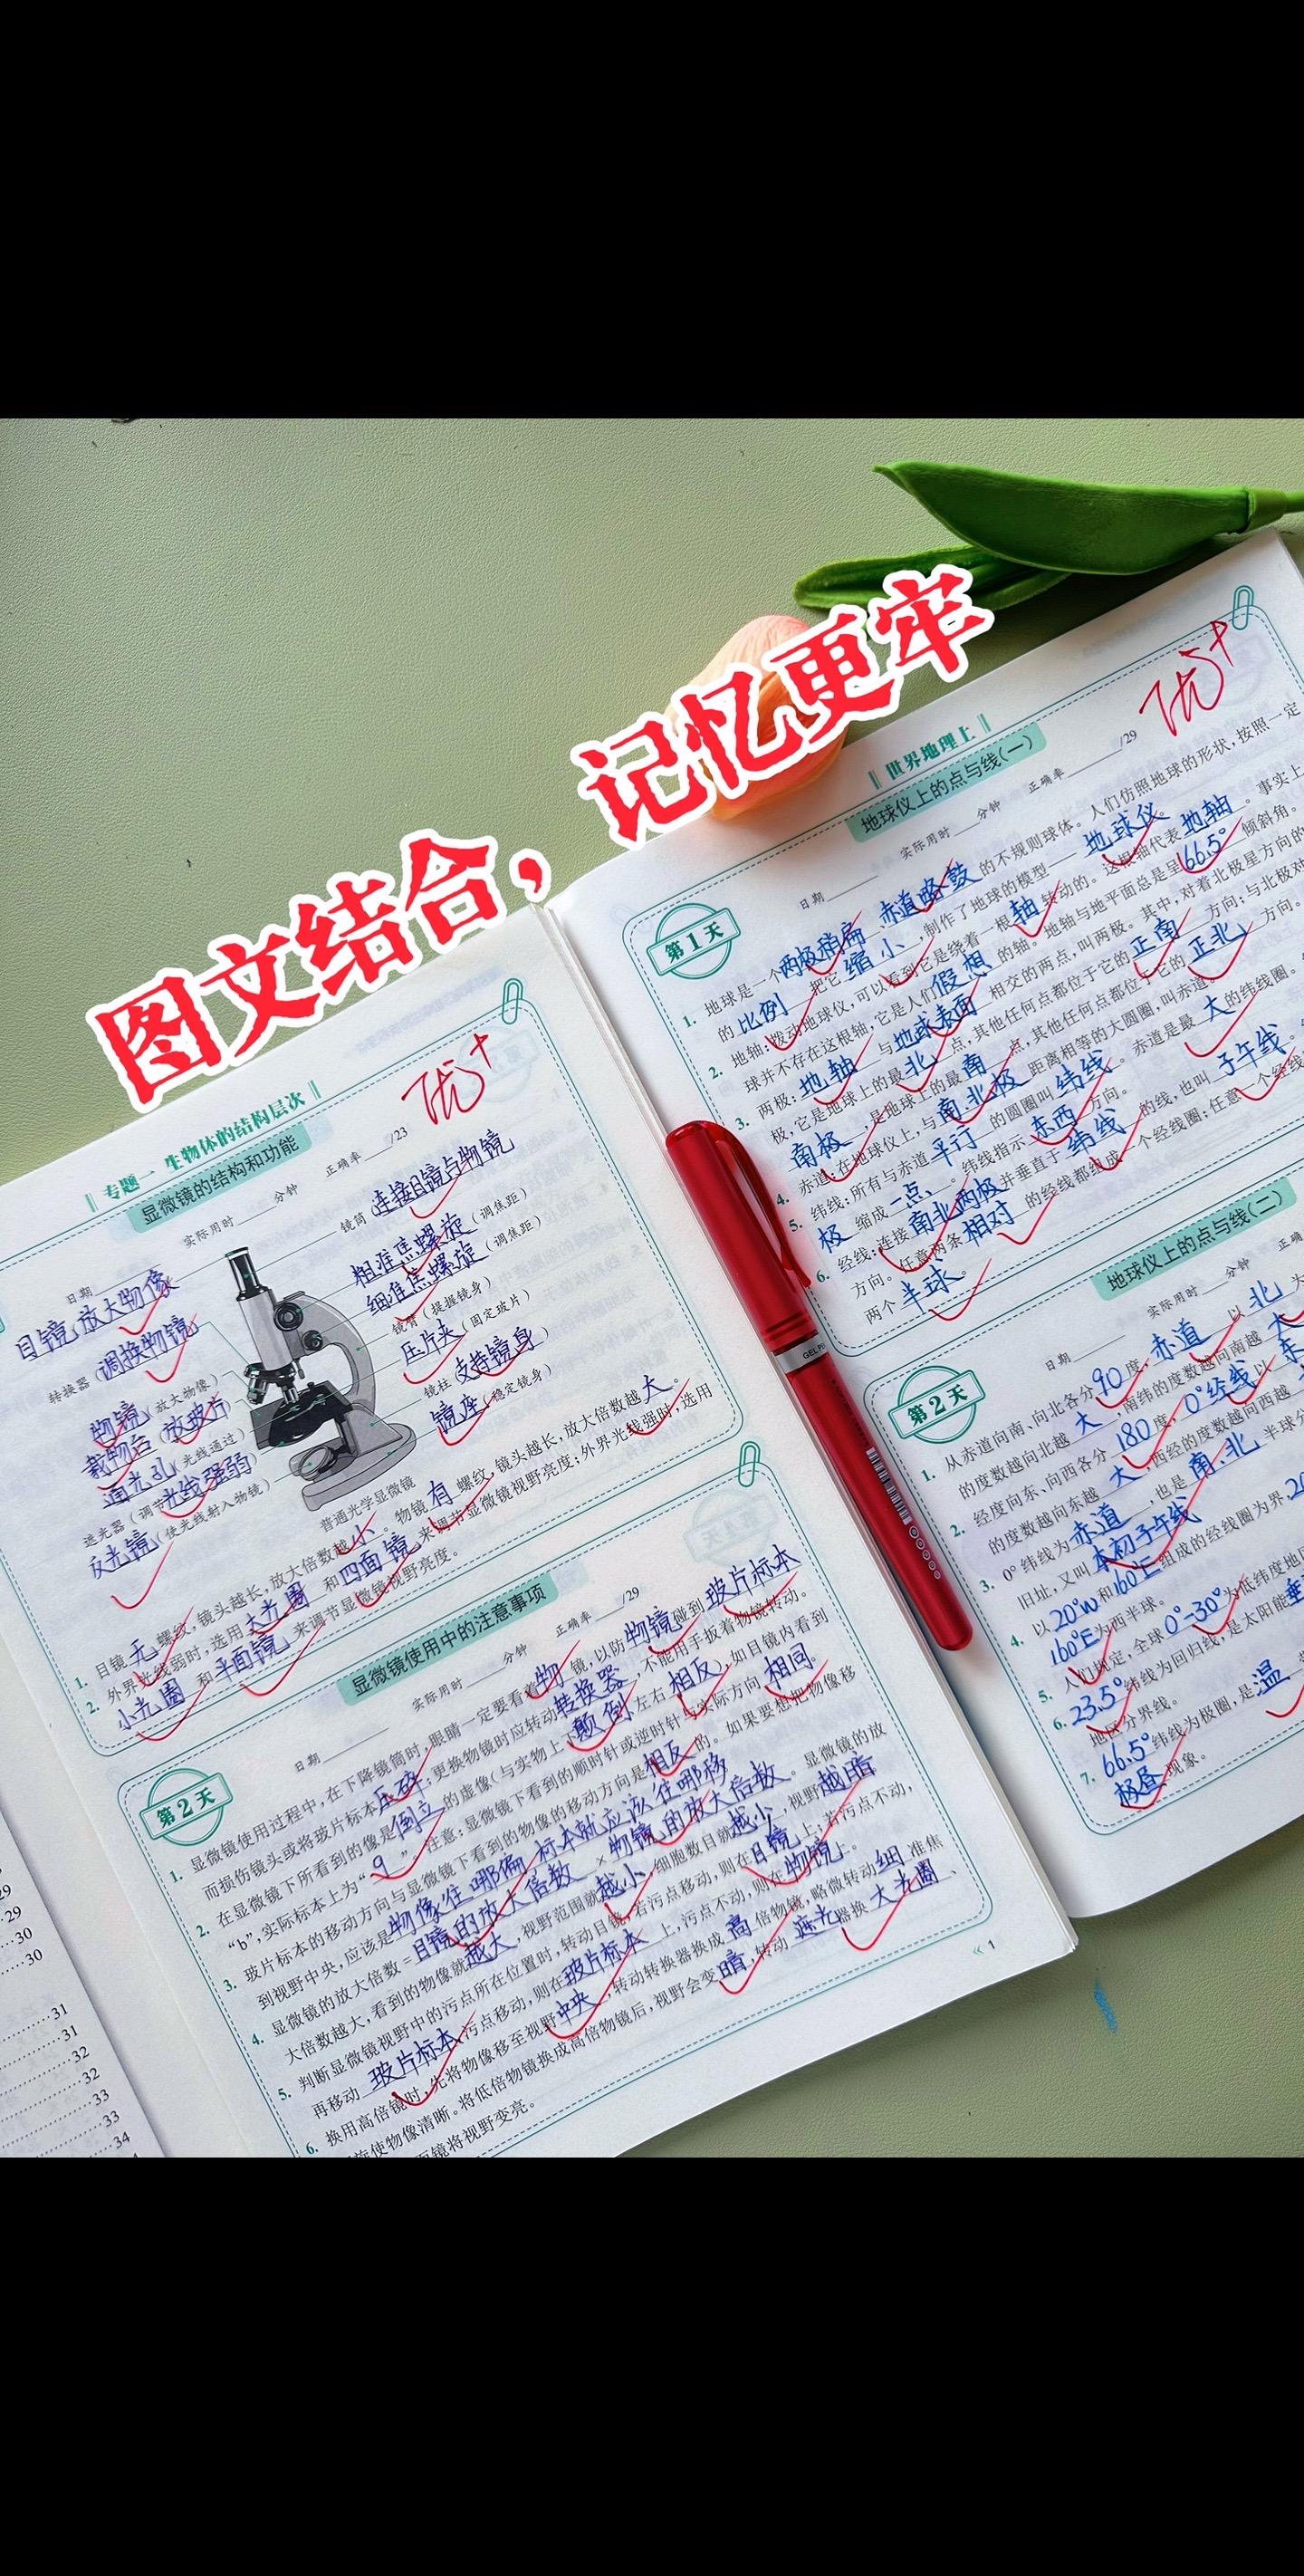 图文结合，记忆更牢
专题一 生物体的结构层次
显微镜的结构和功能
优+
日期 实际用时 分钟 正确率 /23
目镜 放大物像
转换器（调换物镜）
物镜（放大物像）
载物台（放玻片）
通光孔（光线通过）
遮光器（调节光线强弱）
反光镜（使光线射入物镜）
镜筒（连接目镜与物镜）
粗准焦螺旋（调焦距）
细准焦螺旋（调焦距）
镜臂（提握镜身）
压片夹（固定玻片）
镜柱（支持镜身）
镜座（稳定镜身）
普通光学显微镜
1. 目镜无螺纹，镜头越长，放大倍数越小。物镜有螺纹，镜头越长，放大倍数越大。
2. 外界光线弱时，选用大光圈和凹面镜来调节显微镜视野亮度；外界光线强时，选用
小光圈和平面镜来调节显微镜视野亮度。
显微镜使用中的注意事项
第2天
日期 实际用时 分钟 正确率 /29
1. 显微镜使用过程中，在下降镜筒时，眼睛一定要看着物镜，以防物镜碰到玻片标本
而损伤镜头或将玻片标本压碎；更换物镜时应转动转换器，不能用手扳着物镜转动。
2. 在显微镜下所看到的像是倒立的虚像（与实物上下颠倒左右相反），如目镜内看到
“b”，实际标本上为“q”。注意：显微镜下看到的顺时针或逆时针与实际方向相同。
3. 玻片标本的移动方向与显微镜下看到的物像的移动方向是相反的。如果要想把物像移
到视野中央，应该是物像往哪偏，标本就应该往哪移
4. 显微镜的放大倍数=目镜的放大倍数×物镜的放大倍数。显微镜的放
大倍数越大，看到的物像就越大，视野范围就越小，细胞数目就越少，视野越暗
5. 判断显微镜视野中的污点所在位置时，转动目镜，若污点移动，则在目镜上；若污点不动，
再移动玻片标本，污点移动，则在玻片标本上，污点不动，则在物镜上。
6. 换用高倍镜时，先将物像移至视野中央，转动转换器换成高倍物镜，略微转动细准焦
旋使物像清晰。将低倍物镜换成高倍物镜后，视野会变暗，转动遮光器换大光圈、
面镜将视野变亮。
1
世界地理上
地球仪上的点与线（一）
优+
第1天
日期 实际用时 分钟 正确率 /29
1. 地球是一个两极稍扁、赤道略鼓的不规则球体。人们仿照地球的形状，按照一定
的比例把它缩小，制作了地球的模型——地球仪。
2. 地轴：拨动地球仪，可以看到它是绕着一根轴转动的。这根轴代表地轴。事实上
球并不存在这根轴，它是人们假想的轴。地轴与地平面总是呈66.5°倾斜角。
3. 两极：地轴与地球表面相交的两点，叫两极。其中，对着北极星方向的
极，它是地球上的最北点，其他任何点都位于它的正南方向；与北极对
南极，是地球上的最南点，其他任何点都位于它的正北方向。
4. 赤道：在地球仪上，与南、北极距离相等的大圆圈，叫赤道。赤道是最大的纬线圈。
5. 纬线：所有与赤道平行的圆圈叫纬线。
极缩成一点。纬线指示东西方向。
6. 经线：连接南北两极并垂直于纬线的线，也叫子午线。
方向。任意两条相对的经线都组成一个经线圈；任意一个经线
两个半球。
地球仪上的点与线（二）
第2天
日期 实际用时 分钟 正确
1. 从赤道向南、向北各分90度，赤道以北为
的度数越向北越大，南纬的度数越向南越大
2. 经度向东、向西各分180度，0°经线以东
的度数越向东越大，西经的度数越向西越
3. 0°纬线为赤道，也是南、北半球分
旧址，又叫本初子午线
4. 以20°W和160°E组成的经线圈为界，20
160°E为西半球。
5. 人们规定，全球0°-30°为低纬度地区
6. 23.5°纬线为回归线，是太阳能垂
地区分界线。
7. 66.5°纬线为极圈，是温
极昼现象。
29
29
30
30
31
31
32
32
33
33
34
GEL PEN